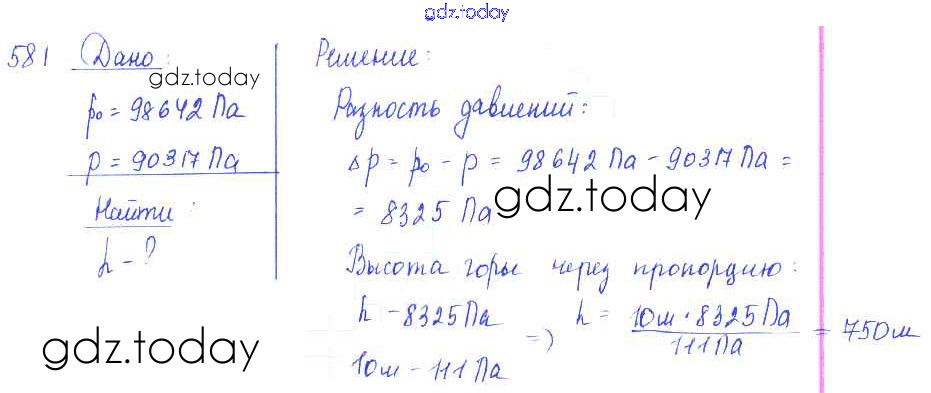 gdz.today
581 Дано:
gdz.today
p₀ = 98642 Па
p = 90317 Па
Найти:
h - ?
Решение:
Разность давлений:
Δp = p₀ - p = 98642 Па - 90317 Па =
= 8325 Па
gdz.today
Высота горы через пропорцию:
h - 8325 Па
10м - 111 Па
=>
h = 10м · 8325 Па / 111 Па = 750м
gdz.today